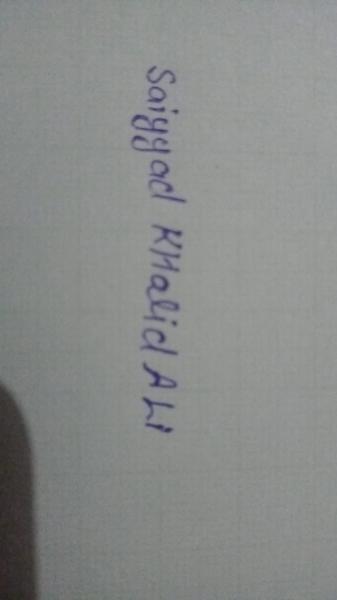 Saiyyad KHalid ALi